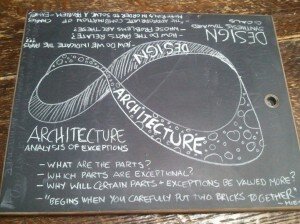 DESIGN
SYNTHESIS TOWARD
GOALS
- HOW DO WE INDICATE THE PARTS
- HOW DO THE PARTS RELATE?
- WHOSE PROBLEMS ARE THESE?
- "THE APPROPRIATE COMBINATION OF
MATERIALS IN ORDER TO SOLVE A PROBLEM"
DESIGN
ARCHITECTURE
ARCHITECTURE
ANALYSIS OF EXCEPTIONS
- WHAT ARE THE PARTS?
- WHICH PARTS ARE EXCEPTIONAL?
- WHY WILL CERTAIN PARTS + EXCEPTIONS BE VALUED MORE?
- "BEGINS WHEN YOU CAREFULLY PUT TWO BRICKS TOGETHER"